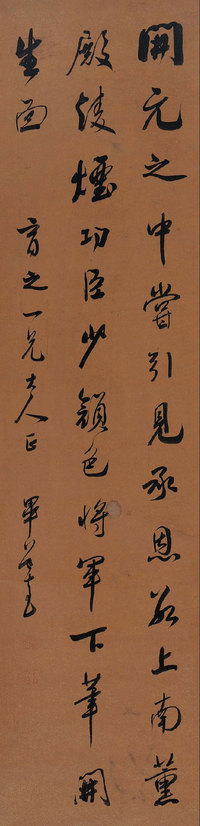 開元之中嘗引見承恩數上南薰
殿凌煙功臣少顏色將軍下筆開
生面
育之一兄大人正 畢